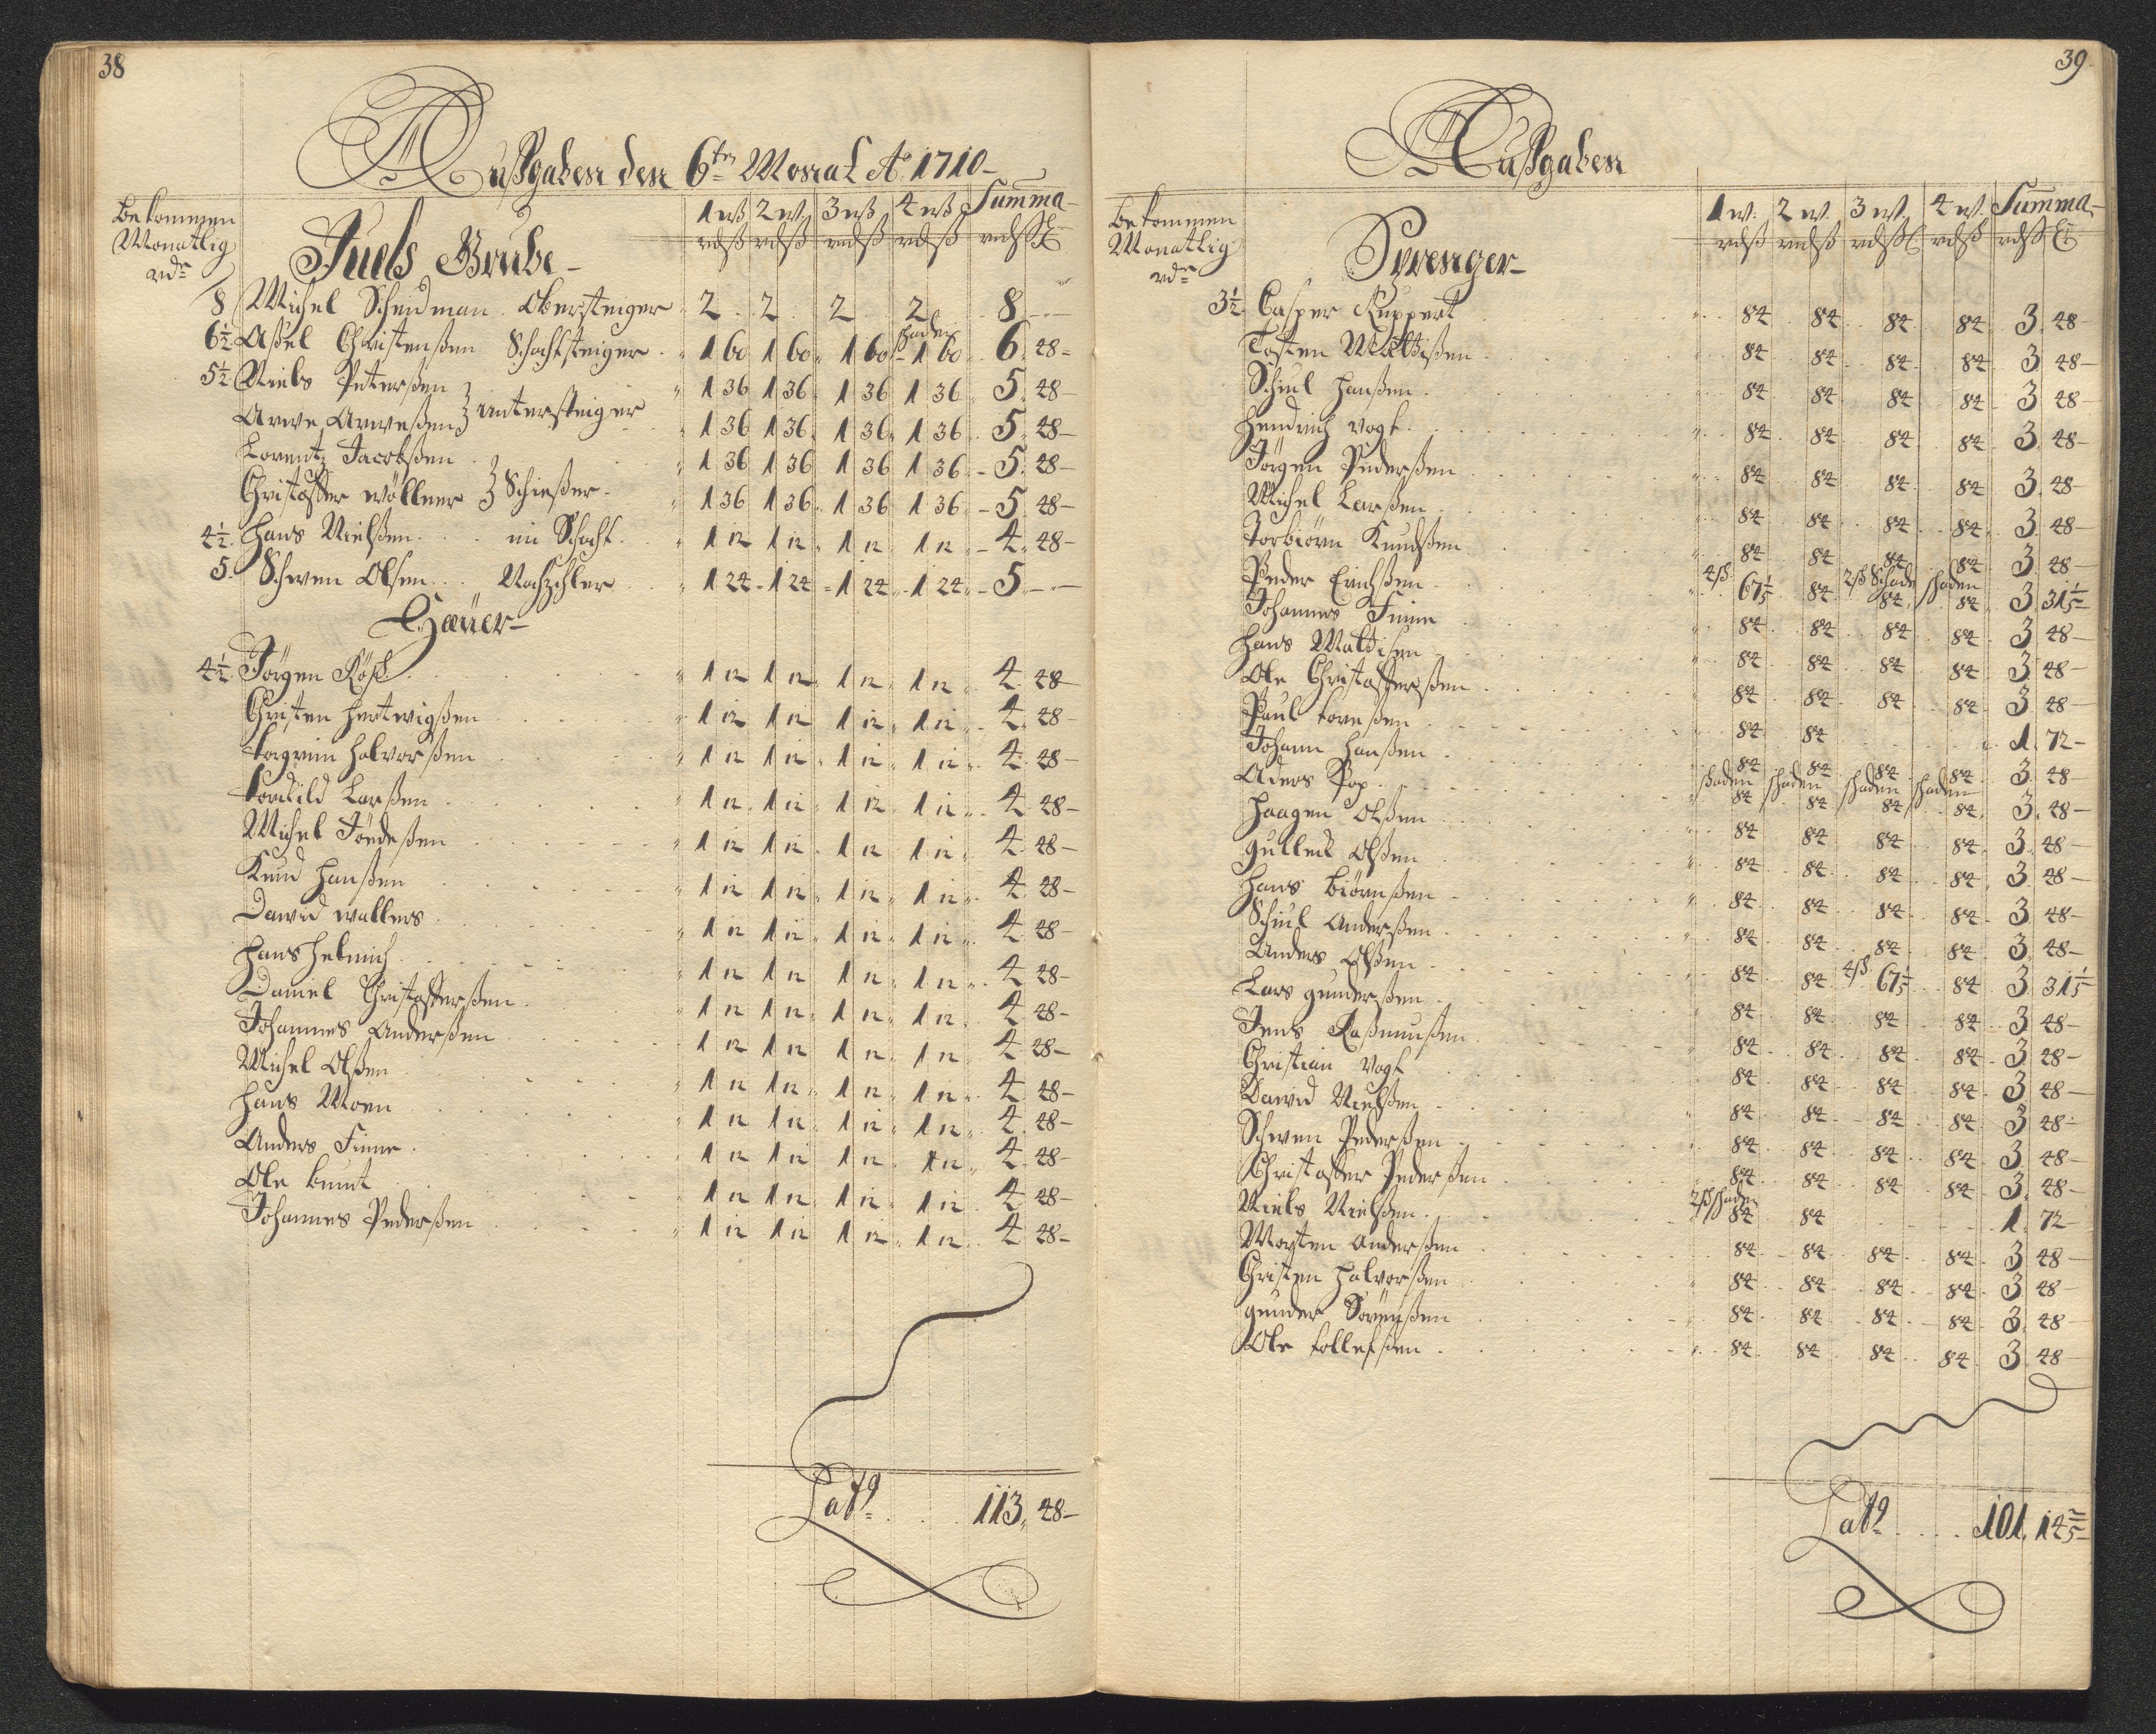 38
Außgaben den 6ten Monat Ao 1710
Bekommen
Monatlig
rdr
Juels Grube
1 w 2 w. 3 w 4 w Summa
rdß rdß rdß rdß rdß
8 Michel Scheidman Obersteiger 2 2 2 2 8
schaden
6½ Aßel Christenßen Schachtsteiger 1 60 1 60 1 60 1 60 6 48
5½ Niels Peterßen 1 36 1 36 1 36 1 36 5 48
untersteiger
Arwe Arweßen 1 36 1 36 1 36 1 36 5 48
Lorentz Jacobßen 1 36 1 36 1 36 1 36 5 48
Schießer
Christoffer wöllner 1 36 1 36 1 36 1 36 5 48
4½ Hans Nielßen im Schacht 1 12 1 12 1 12 1 12 4 48
5. Schwen Olsen Nachzehler 1 24 1 24 1 24 1 24 5
Häuer
4½ Jörgen Röst 1 12 1 12 1 12 1 12 4 48
Christen Hertwigßen 1 12 1 12 1 12 1 12 4 48
Torgrim Halvorßen 1 12 1 12 1 12 1 12 4 48
Torkild Larßen 1 12 1 12 1 12 1 12 4 48
Michel 1 12 1 12 1 12 1 12 4 48
Knud Hanßen 1 12 1 12 1 12 1 12 4 48
David wallers 1 12 1 12 1 12 1 12 4 48
Hans Helmich 1 12 1 12 1 12 1 12 4 48
Daniel Christofferßen 1 12 1 12 1 12 1 12 4 48
Johannes Anderßen 1 12 1 12 1 12 1 12 4 48
Michel Olßen 1 12 1 12 1 12 1 12 4 48
Hans Moen 1 12 1 12 1 12 1 12 4 48
Anders Finne 1 12 1 12 1 12 1 12 4 48
Ole 1 12 1 12 1 12 1 12 4 48
Johannes Pederßen 1 12 1 12 1 12 1 12 4 48
Lat9 113, 48
39
Außgaben
Bekommen
Monatlig
rdr
Sprenger
1 w. 2 w. 3 w. 4 w. Summa
rdß rdß rdß rdß rdß
3½ Casper Ruppert 84 84 84 84 3 48
Tosten Mattißen 84 84 84 84 3 48
Schiul Hanßen 84 84 84 84 3 48
Hendrich Vogt 84 84 84 84 3 48
Jörgen Pederßen 84 84 84 84 3 48
Michel Larßen 84 84 84 84 3 48
Torbiörn Knudßen 84 84 84 84 3 48
4ß 2ß Schade schaden
Peder Erichßen 67 1/5 84 84 84 3 31 1/5
Johannes Finne 84 84 84 84 3 48
Hans Mattisen 84 84 84 84 3 48
Ole Christofferßen 84 84 84 84 3 48
Paul toreßen 84 84 1 72
Johann Hanßen 84 84 84 84 3 48
schaden schaden schaden schaden
Aders Pop 84 84 84 84 3 48
Haagen Olßen 84 84 84 84 3 48
Gulleck Olßen 84 84 84 84 3 48
Hans biörnßen 84 84 84 84 3 48
Schiul Anderßen 84 84 84 84 3 48
4ß
Anders Olßen 84 84 67 1/5 84 3 31 1/5
Lars gunderßen 84 84 84 84 3 48
Jens Raßmußen 84 84 84 84 3 48
Christian Vogt 84 84 84 84 3 48
David Nielßen 84 84 84 84 3 48
Schwen Pederßen 84 84 84 84 3 48
Christoffer Pederßen 84 84 84 84 3 48
2ß schaden
Niels Nielßen 84 84 1 72
Morten Anderßen 84 84 84 84 3 48
Christen Halvorßen 84 84 84 84 3 48
gunder Sörenßen 84 84 84 84 3 48
Ole tollefsen 84 84 84 84 3 48
Lat9 101, 14 2/5